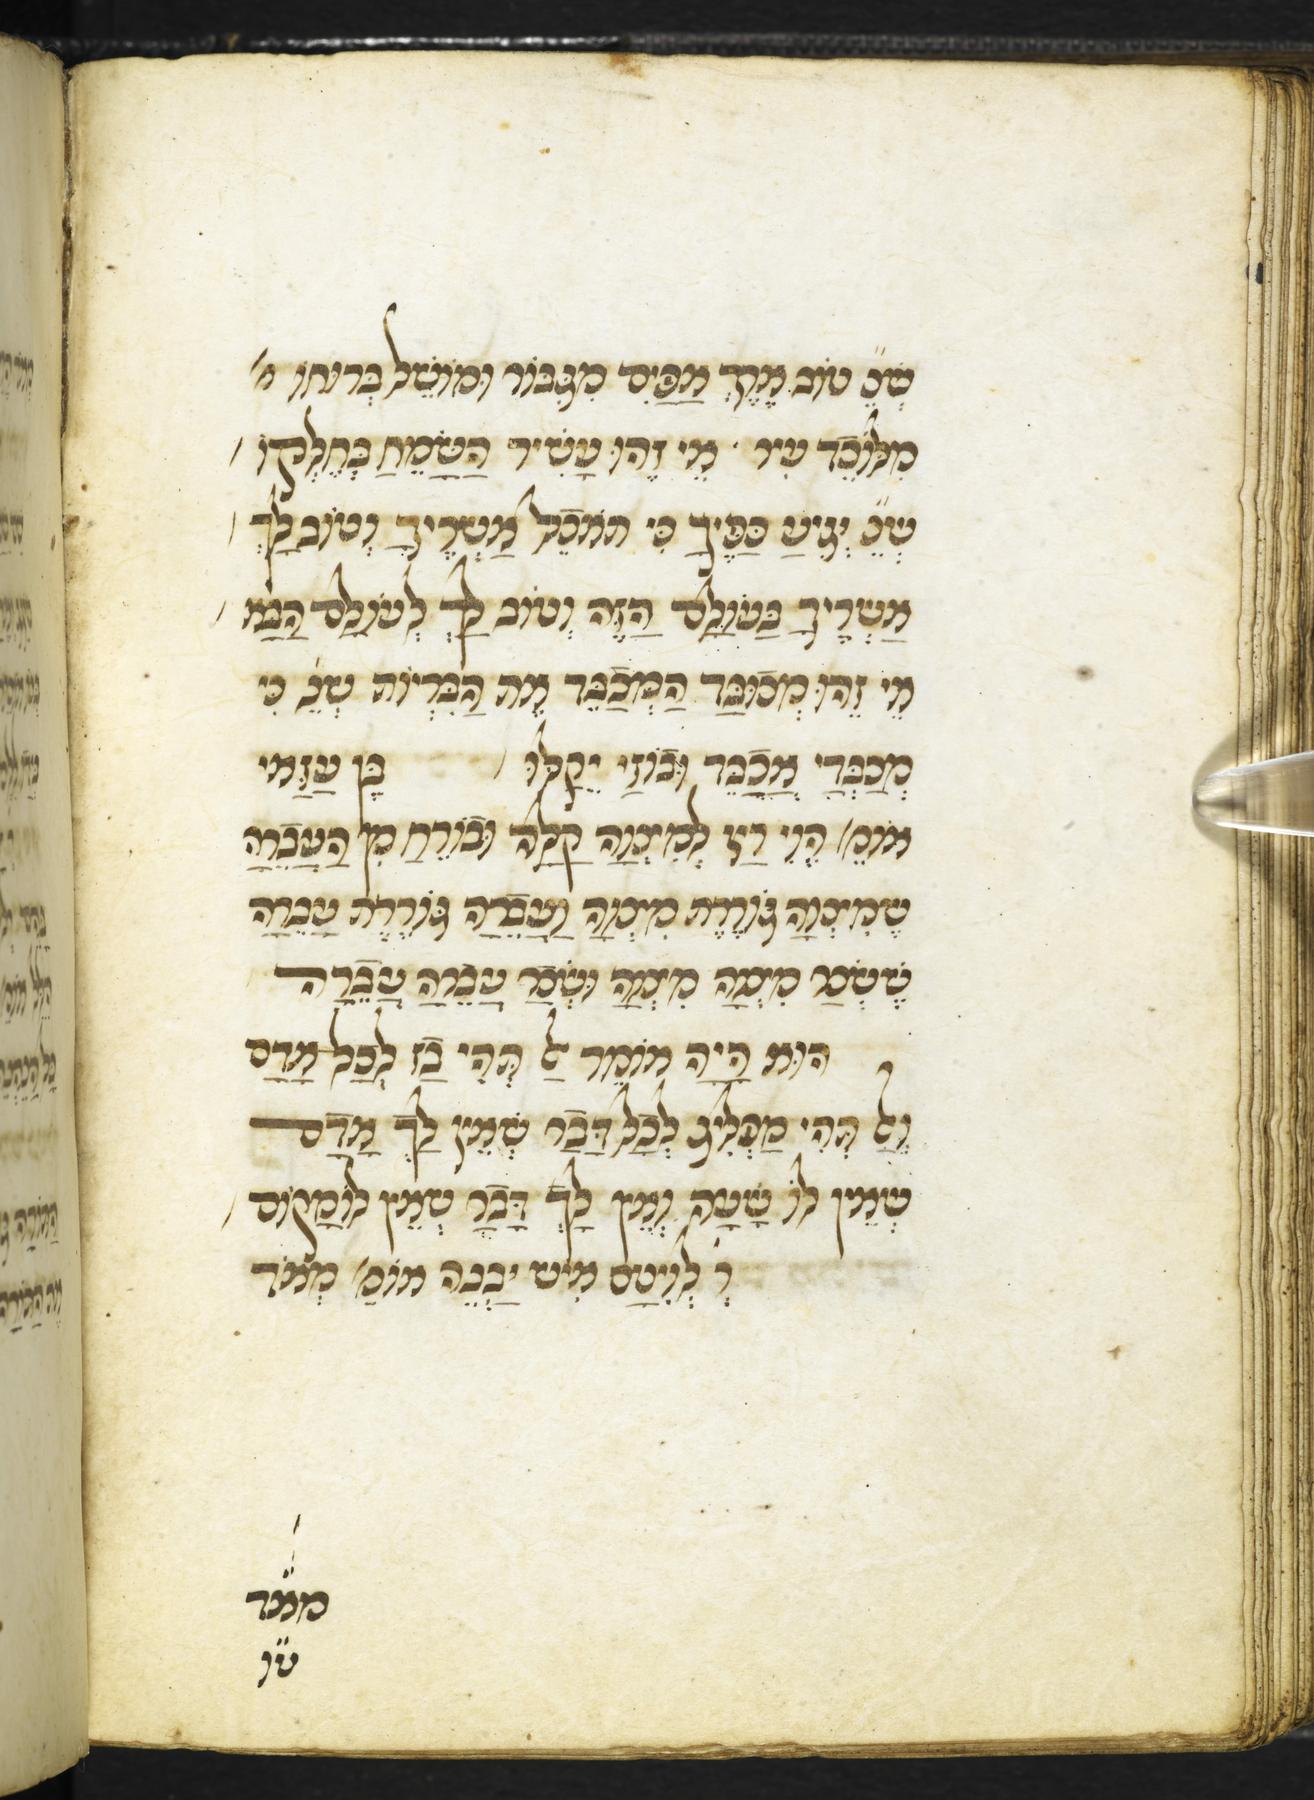 שֶׁנֶּ֞ טוֹב אֶרֶךְ אַפַּיִם מִגִּבּוֹר וּמוֹשֵׁל בְּרוּחוֹ
מִלּוֹכֵד עִיר אֵי זֶהוּ עָשִׁיר הַשָּׂמֵחַ בְּחֶלְקוֹ
שֶׁנֶּ֞ יְגִיעַ כַּפֶּיךָ כִּי תֹאכֵל אַשְׁרֶיךָ וְטוֹב לָךְ
אַשְׁרֶיךָ בָּעוֹלָם הַזֶּה וְטוֹב לָךְ לָעוֹלָם הַבָּא
אֵי זֶהוּ מְכוּבָּד הַמְכַבֵּד אֶת הַבְּרִיּוֹת שֶׁנֶּ כִּי
מְכַבְּדַי אֲכַבֵּד וּבוֹזַי יֵקָלּוּ בֶּן עַזַּאי
אוֹמֵ הֱוֵי רָץ לְמִצְוָה קַלָּה וּבוֹרֵחַ מִן הָעֲבֵרָה
שֶׁמִּצְוָה גּוֹרֶרֶת מִצְוָה וַעֲבֵרָה גּוֹרֶרֶת עֲבֵרָה
שֶׁשְּׂכַר מִצְוָה מִצְוָה וּשְׂכַר עֲבֵרָה עֲבֵרָה
הוּא הָיָה אוֹמֵר אַל תְּהִי בָז לְכָל אָדָם
וְאַל תְּהִי מַפְלִיג לְכָל דָּבָר שֶׁאֵין לְךָ אָדָם
שֶׁאֵין לוֹ שָׁעָה וְאֵין לְךָ דָּבָר שֶׁאֵין לוֹ מָקוֹם
ר לְוִיטָס אִישׁ יַבְנֶה אוֹמֵ מְאֹד
מאד